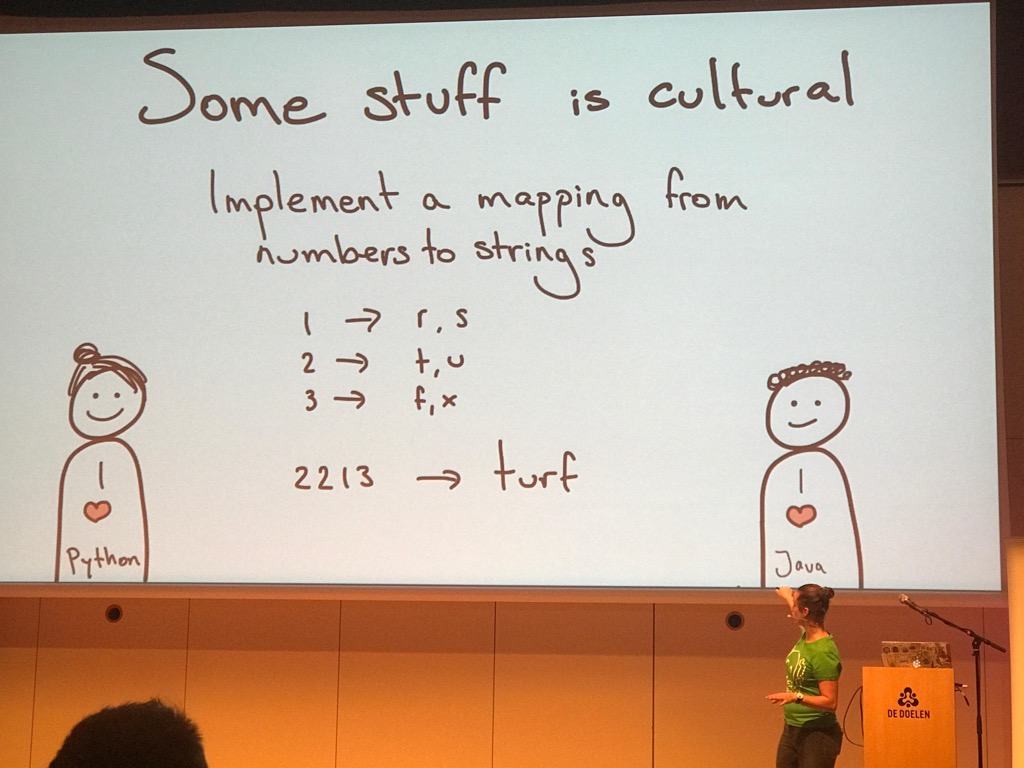 Some stuff is cultural
Implement a mapping from
numbers to strings
1 → r, s
2 → t, u
3 → f, x
2213 → turf
I
❤
Python
I
❤
Java
DE DOELEN